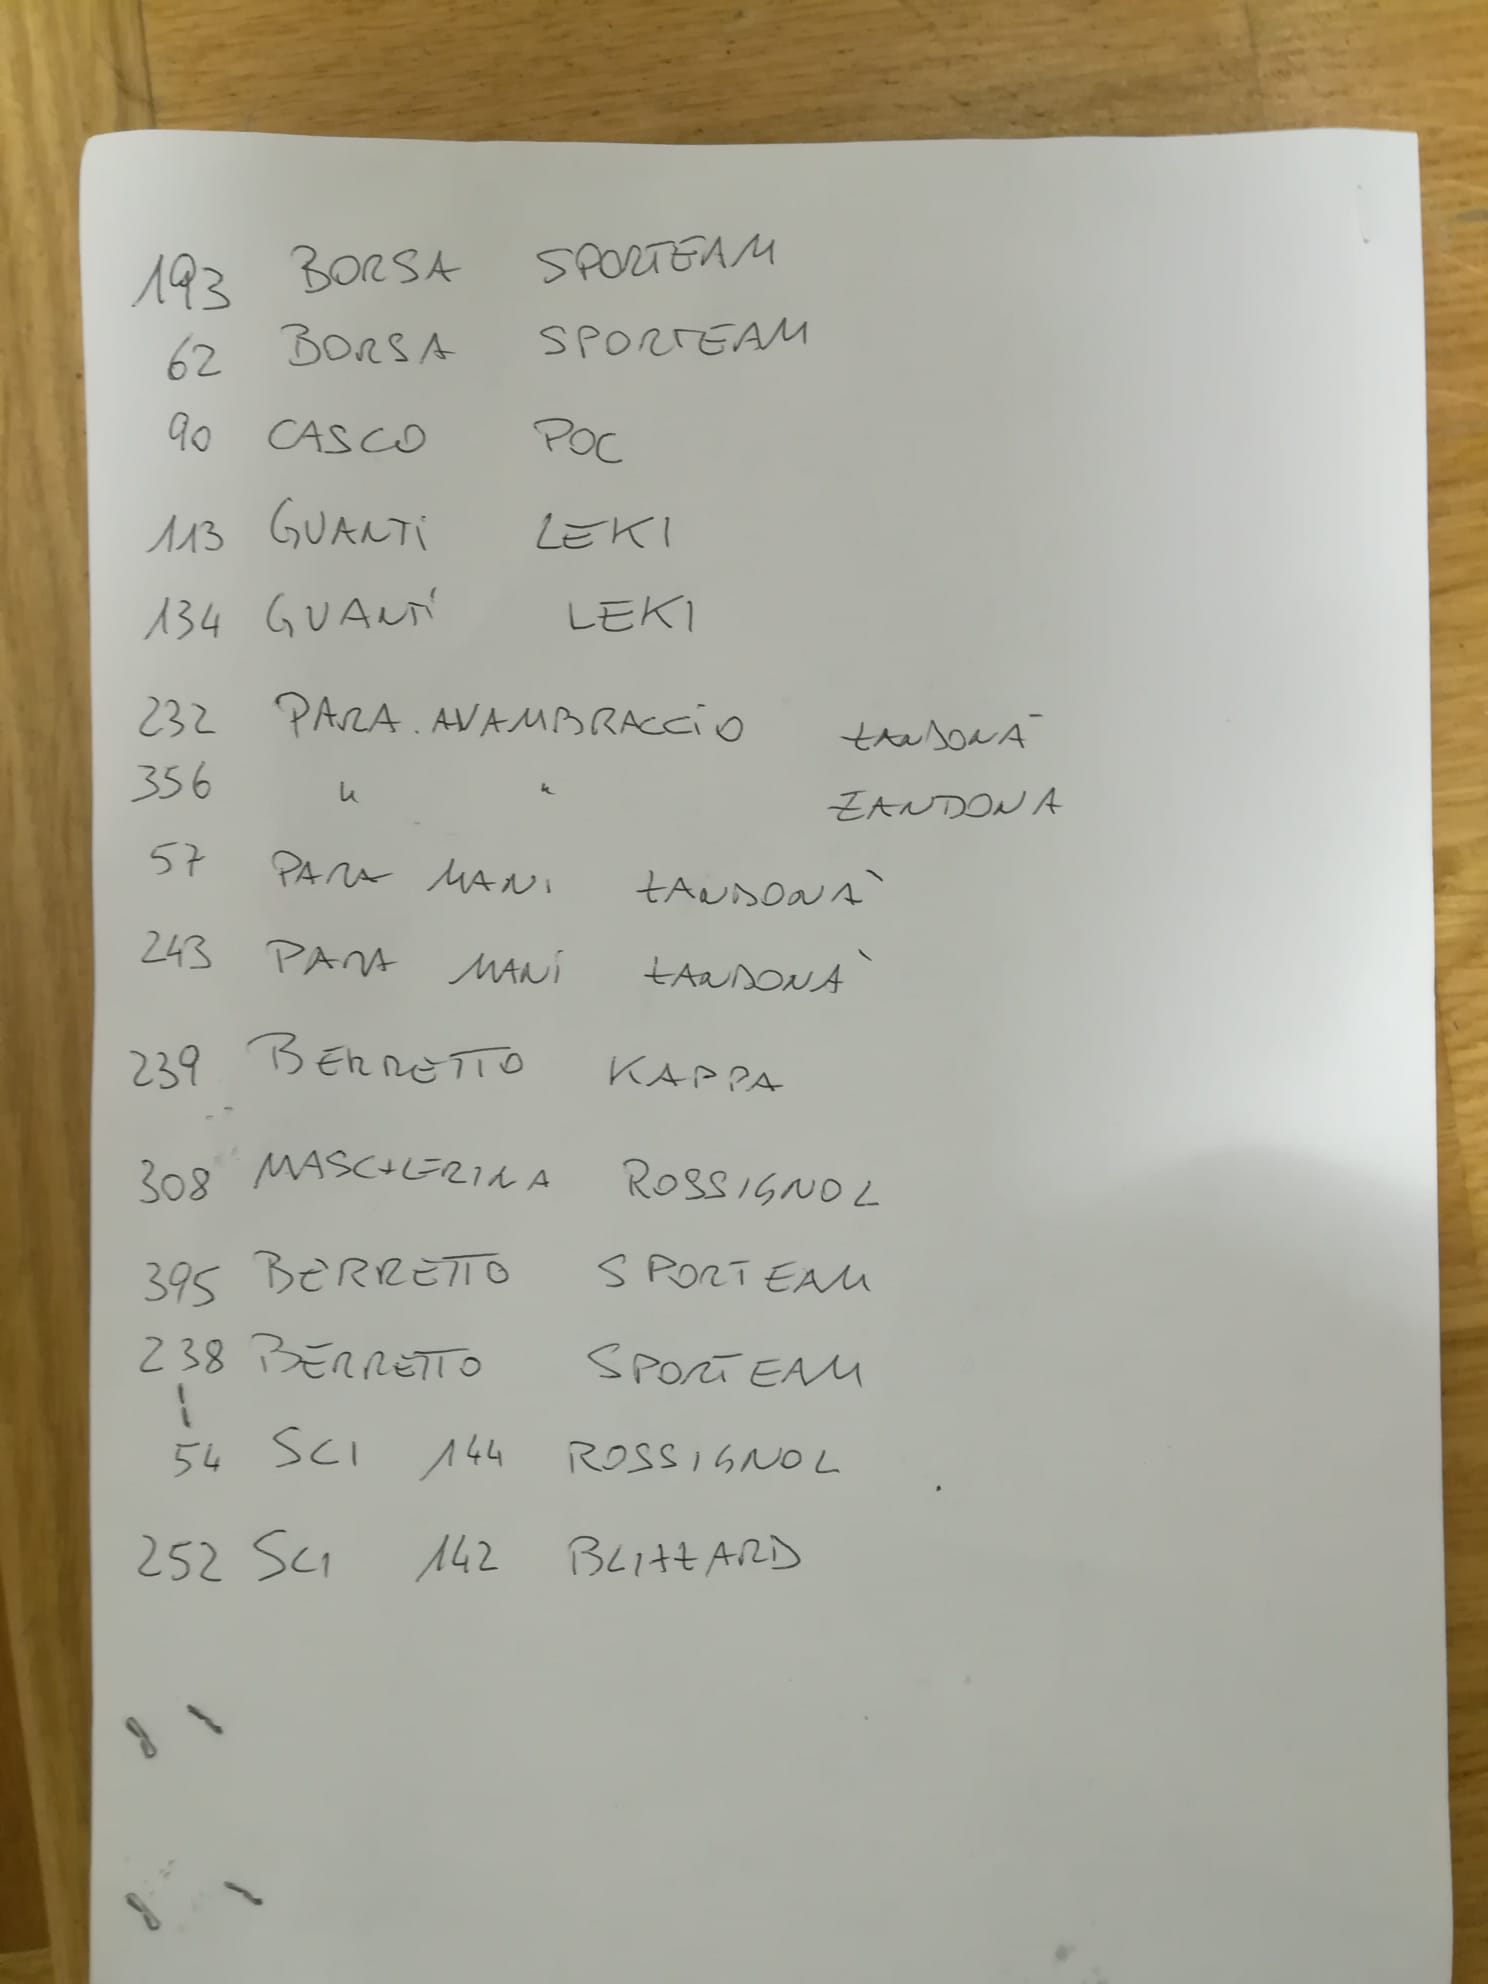 193 BORSA SPORTEAM
62 BORSA SPORTEAM
90 CASCO POC
113 GUANTI LEKI
134 GUANTI LEKI
232 PARA. AVAMBRACCIO ZANDONÀ
356 " " ZANDONA
57 PARA MANI ZANDONA`
243 PARA MANI ZANDONA`
239 BERRETTO KAPPA
308 MASCHERINA ROSSIGNOL
395 BERRETTO SPORTEAM
238 BERRETTO SPORTEAM
54 SCI 144 ROSSIGNOL
252 SCI 142 BLIZZARD